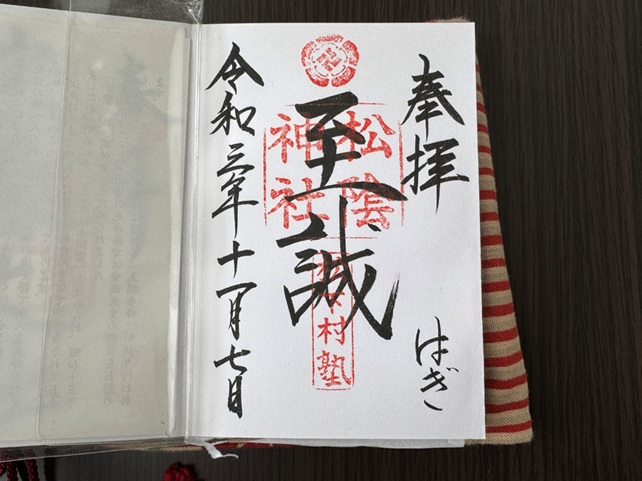 奉拝
はぎ
松陰
神社
至誠
松下村塾
令和三年十一月七日